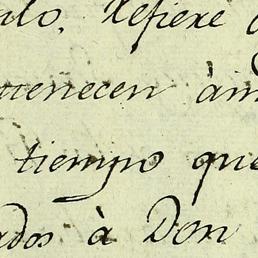 ulo, Refiere
enecen àm
tiempo que
ados à Don